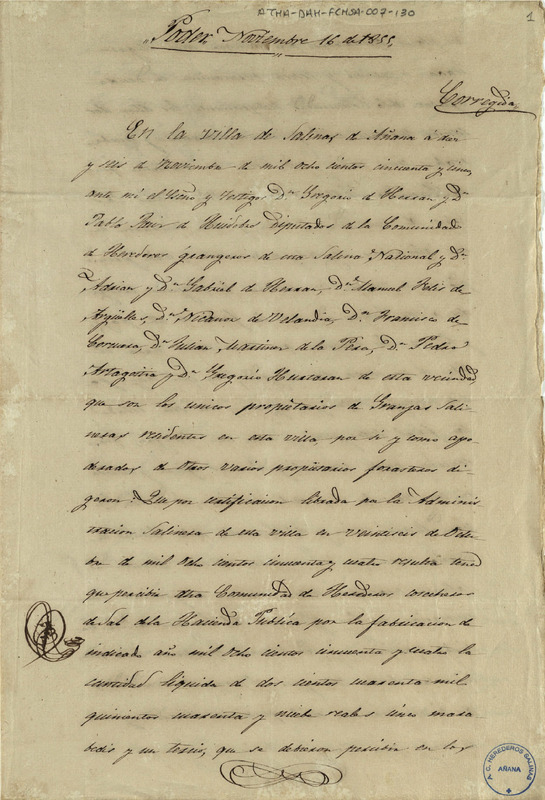 ATHA-DAH-FCHSA-007-130
1
Poder. Noviembre 16 de 1855,
Corregida
En la villa de Salinas de Añana a diez
y seis de Noviembre de mil ocho cientos cincuenta y cinco,
ante mi el Esno y testigos Dn Gregorio de Herran y Dn
Pablo Ruiz de Huidobro Diputados de la Comunidad
de Herederos grangeros de esta Salina Nacional y Dn
Adrian y Dn Gabriel de Herran, Dn Manuel Felis de
Arguelles, Dn Nicanor de Velandia, Dn Francisco de
Dn Julian Martinez de la Pera, Dn Pedro
y Dn Gregorio de esta vecindad
que son los unicos propietarios de Granjas Sali-
nosas residentes en esta villa por si y como apo-
derados de otros varios propietarios forasteros di-
geron: Que por certificacion librada por la Adminis
tracion Salinera de esta villa en veintiseis de Octu-
bre de mil ocho cientos cincuenta y cuatro resulta tener
que percibir dha Comunidad de Herederos cosecheros
de Sal de la Hacienda Publica por la fabricacion de
indicado año mil ocho cientos cincuenta y cuatro la
cantidad liquida de dos cientos cuarenta mil
quinientos cuarenta y nuebe reales cinco mara
bedis y un tercio, que se debieron percibir en los
A. C. HEREDEROS SALINAS
AÑANA